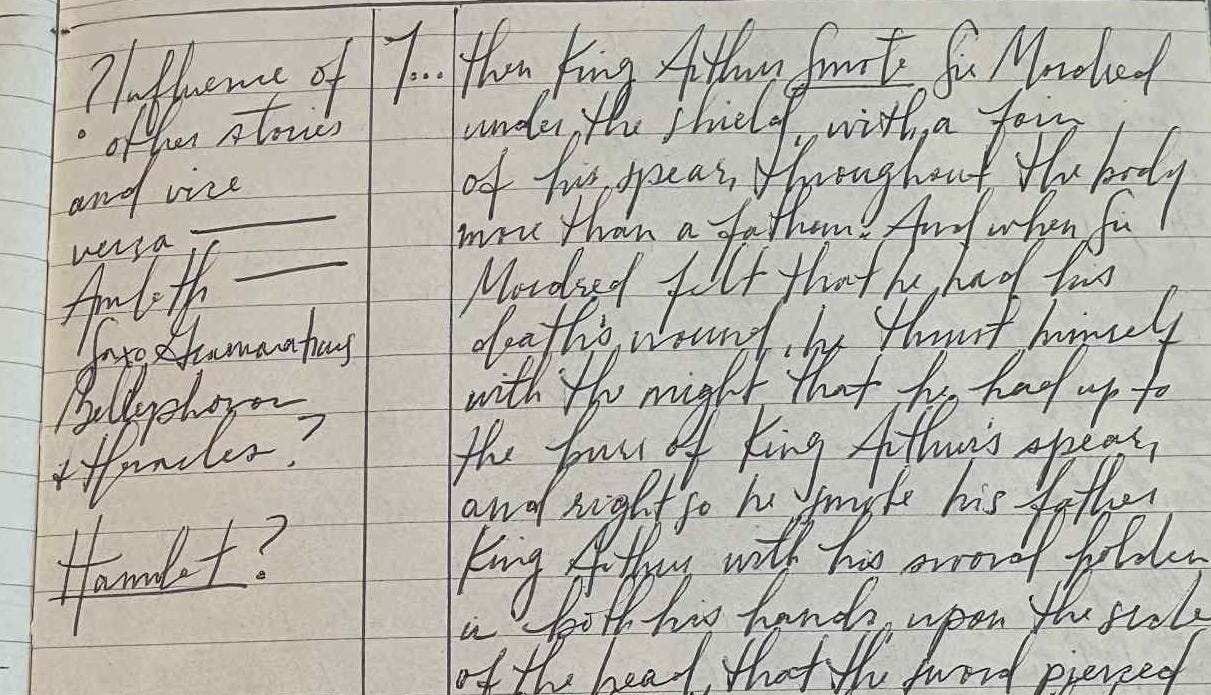 ? Influence of
other stories
and vice
versa
Amleth
Saxo Grammaticus
Bellerphoron
+ Heracles?
Hamlet?
7... then King Arthur smote Sir Mordred
under the shield, with a foin
of his spear, throughout the body
more than a fathom. And when Sir
Mordred felt that he had his
death's wound, he thrust himself
with the might that he had up to
the burr of King Arthur's spear,
and right so he smote his father
King Arthur with his sword holden
in both his hands, upon the side
of the head, that the sword pierced